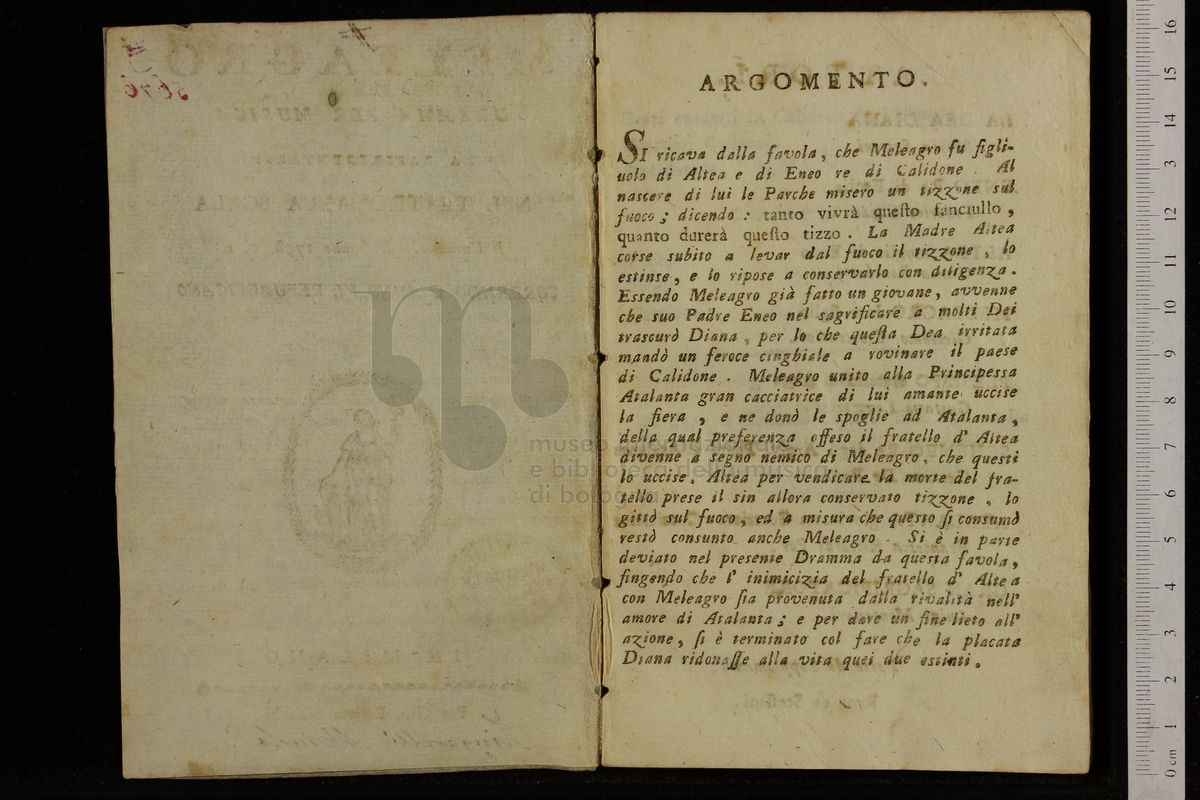 5676
ARGOMENTO.
SI ricava dalla favola, che Meleagro fu figli-
uolo di Altea e di Eneo re di Calidone. Al
nascere di lui le Parche misero un tizzone sul
fuoco; dicendo: tanto vivrà questo fanciullo,
quanto durerà questo tizzo. La Madre Altea
corse subito a levar dal fuoco il tizzone, lo
estinse, e lo ripose a conservarlo con diligenza.
Essendo Meleagro già fatto un giovane, avvenne
che suo Padre Eneo nel sagrificare a molti Dei
trascurò Diana, per lo che questa Dea irritata
mandò un feroce cinghiale a rovinare il paese
di Calidone. Meleagro unito alla Principessa
Atalanta gran cacciatrice di lui amante uccise
la fiera, e ne donò le spoglie ad Atalanta,
della qual preferenza offeso il fratello d' Altea
divenne a segno nemico di Meleagro, che questi
lo uccise. Altea per vendicare la morte del fra-
tello prese il sin allora conservato tizzone, lo
gittò sul fuoco, ed a misura che questo si consumò
restò consunto anche Meleagro. Si è in parte
deviato nel presente Dramma da questa favola,
fingendo che l' inimicizia del fratello d' Altea
con Meleagro sia provenuta dalla rivalità nell'
amore di Atalanta; e per dare un fine lieto all'
azione, si è terminato col fare che la placata
Diana ridonasse alla vita quei due estinti.
museo internazionale
e biblioteca della musica
di bologna
0 cm 1 2 3 4 5 6 7 8 9 10 11 12 13 14 15 16